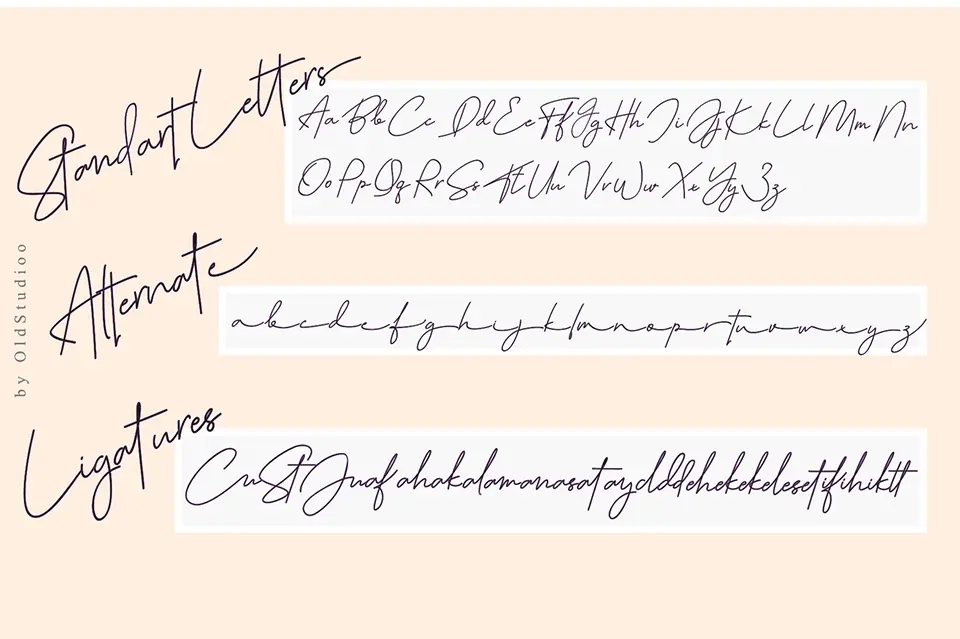 Standart Letters
Aa Bb Cc Dd Ee Ff Gg Hh Ii Jj Kk Ll Mm Nn
Oo Pp Qq Rr Ss Tt Uu Vv Ww Xx Yy Zz
Alternate
abcdefghijklmnopqrstuvwxyz
by OldStudioo
Ligatures